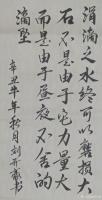 涓滴之水终可以磨损大
石不是由于它力量大
而是由于昼夜不舍的
滴坠
辛丑牛年秋月刘开云书